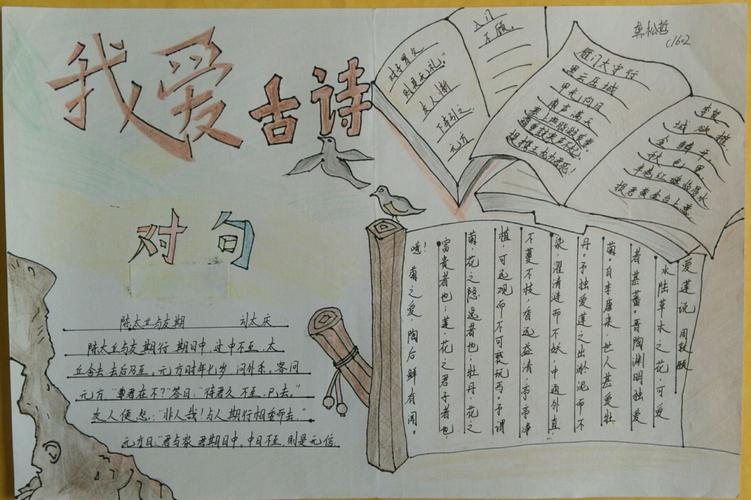 我爱古诗
对句
陈太丘与友期
陈太丘与友期行 期日中 过中不至 太
丘舍去 去后乃至 元方时年七岁 门外戏 客问
元方 "尊君在不?"答曰:"待君久不至,已去。"
友人便怒:"非人哉!与人期行相委而去。"
元方曰"君与家君期日中,中日不至,则是无信
则是无礼。"
友人惭
下车引之
元方
入门
不顾
c1602
雁门太守行
李贺
黑云压城
城欲摧
甲光向日
金鳞开
角声满天
秋色里
半卷红旗临易水
提携玉龙为君死!
爱莲说 周敦颐
水陆草木之花,可爱
者甚蕃。晋陶渊明独爱
菊。自李唐来,世人甚爱牡
丹。予独爱莲之出淤泥而不
染,濯清涟而不妖,中通外直,
不蔓不枝,香远益清,亭亭净
植,可远观而不可亵玩焉。予谓
菊,花之隐逸者也;牡丹,花之
富贵者也;莲,花之君子者也
噫!菊之爱,陶后鲜有闻。